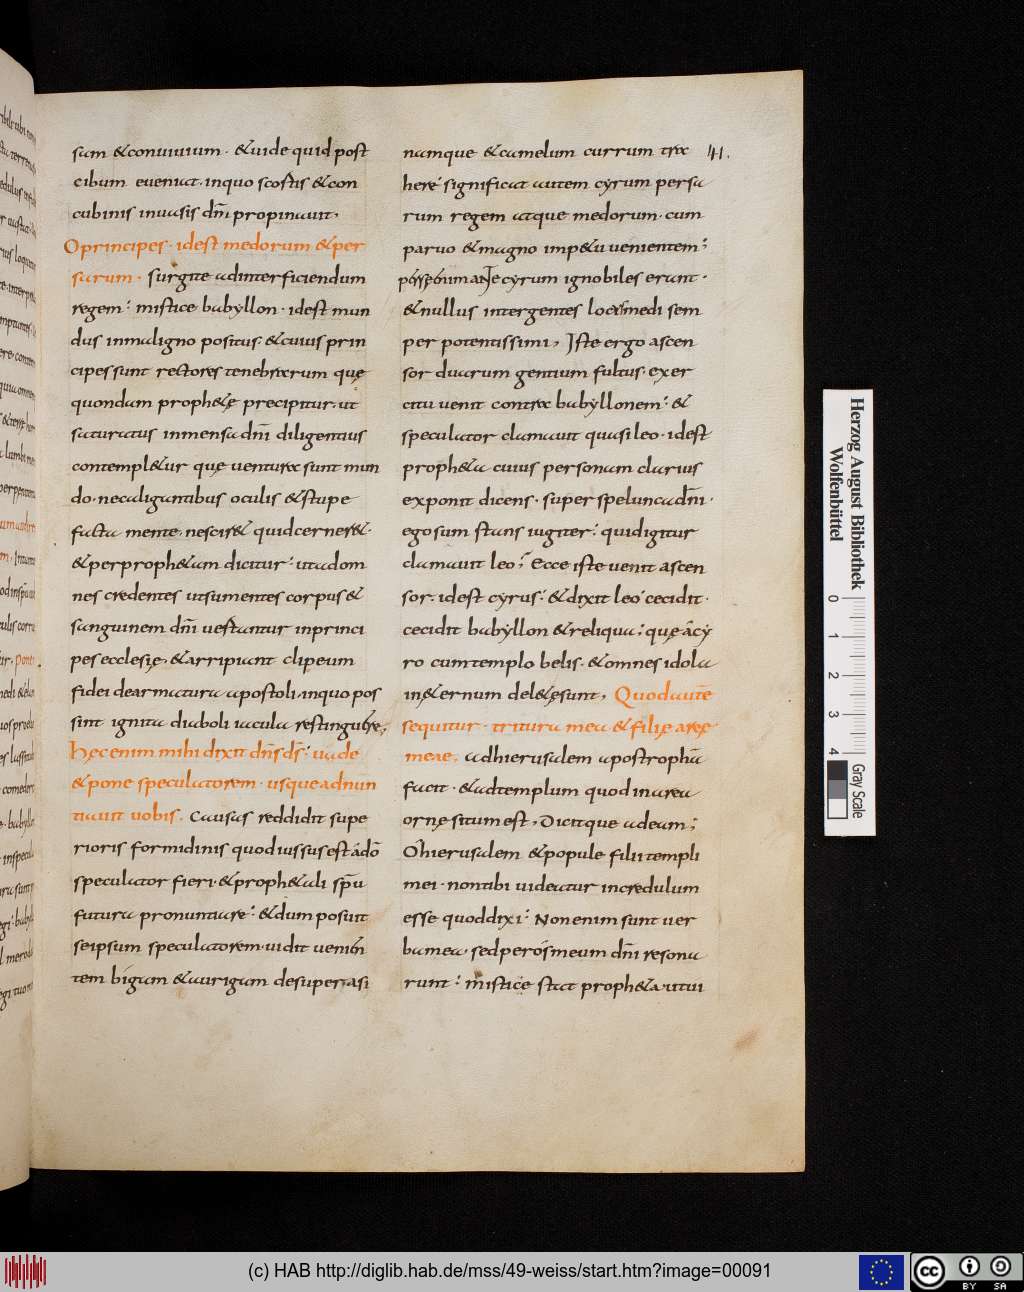 sam &conuiuium · &uide quid post
cibum eueniat · inquo scortis &con
cubinis inuasis dn̄i propinauit ·
O principes · idest medorum &per
sarum · surgite adinterficiendum
regem : mistice babyllon · idest mun
dus inmaligno positus · &cuius prin
cipes sunt rectores tenebrarum quę
quondam proph&ę precipitur · ut
saturatus inmensa dn̄i diligentius
contempl&ur quę uentura sunt mun
do · necaligantibus oculis &stupe
facta mente · nescir& quidcerner& ·
&perproph&am dicitur : utadom
nes credentes utsumentes corpus &
sanguinem dn̄i uestantur inprinci
pes ecclesię · &arripiant clipeum
fidei dearmatura apostoli · inquo pos
sint ignita diaboli iacula restinguere ;
hęcenim mihi dixit dn̄s ds̄ : uade
&pone speculatorem · usque adnun
tiauit uobis . Causas reddidit supe
rioris formidinis quod iussus est ádō
speculator fieri · &proph&ali sp̄u
futura pronuntiare : &dum posuit
seipsum speculatorem · uidit uenien
tem bigam &aurigam desuper · asi
namque &camelum currum trax 41.
here significat autem cyrum persa
rum regem atque medorum · cum
paruo &magno imp&u uenientem :
cyrum ignobiles erant ·
&nullus intergentes medi sem
per potentissimi , Iste ergo ascen
sor duarum gentium fultus · exer
citu uenit contra babyllonem : &
speculator clamauit quasi leo · idest
proph&a cuius personam clarius
exponit dicens · super speluncadn̄i ·
egosum stans iugiter : quidigitur
clamauit leo ; Ecce iste uenit ascen
sor · idest cyrus : &dixit leo cecidit ·
cecidit babyllon &reliqua ; quę ácy
ro cumtemplo belis · &omnes idola
in&ernum del&ęsunt , Quodautē
sequitur · tritura mea &filię areę
meae . adhierusalem apostrophā
facit · &adtemplum quod inarea
ornę situm est , Dicitque adeam ;
O hierusalem &popule filii templi
mei · nontibi uideatur incredulum
esse quoddixi : Nonenim sunt uer
bamea · sedperósmeum dn̄i resona
runt : mistice stat proph&a · utui
Herzog August Bibliothek
Wolfenbüttel
0 1 2 3 4
Gray Scale
(c) HAB http://diglib.hab.de/mss/49-weiss/start.htm?image=00091
cc BY SA